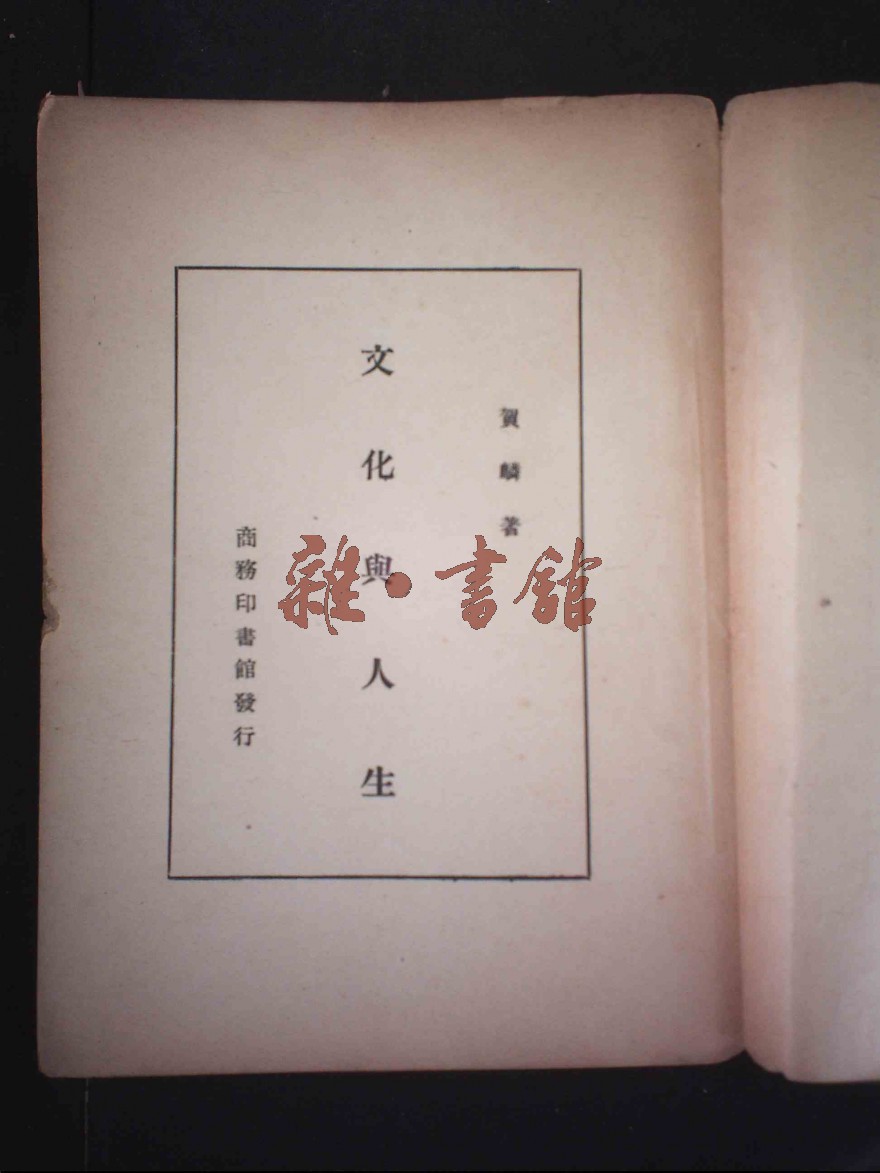 賀麟著
文化與人生
商務印書館發行
雜·書館